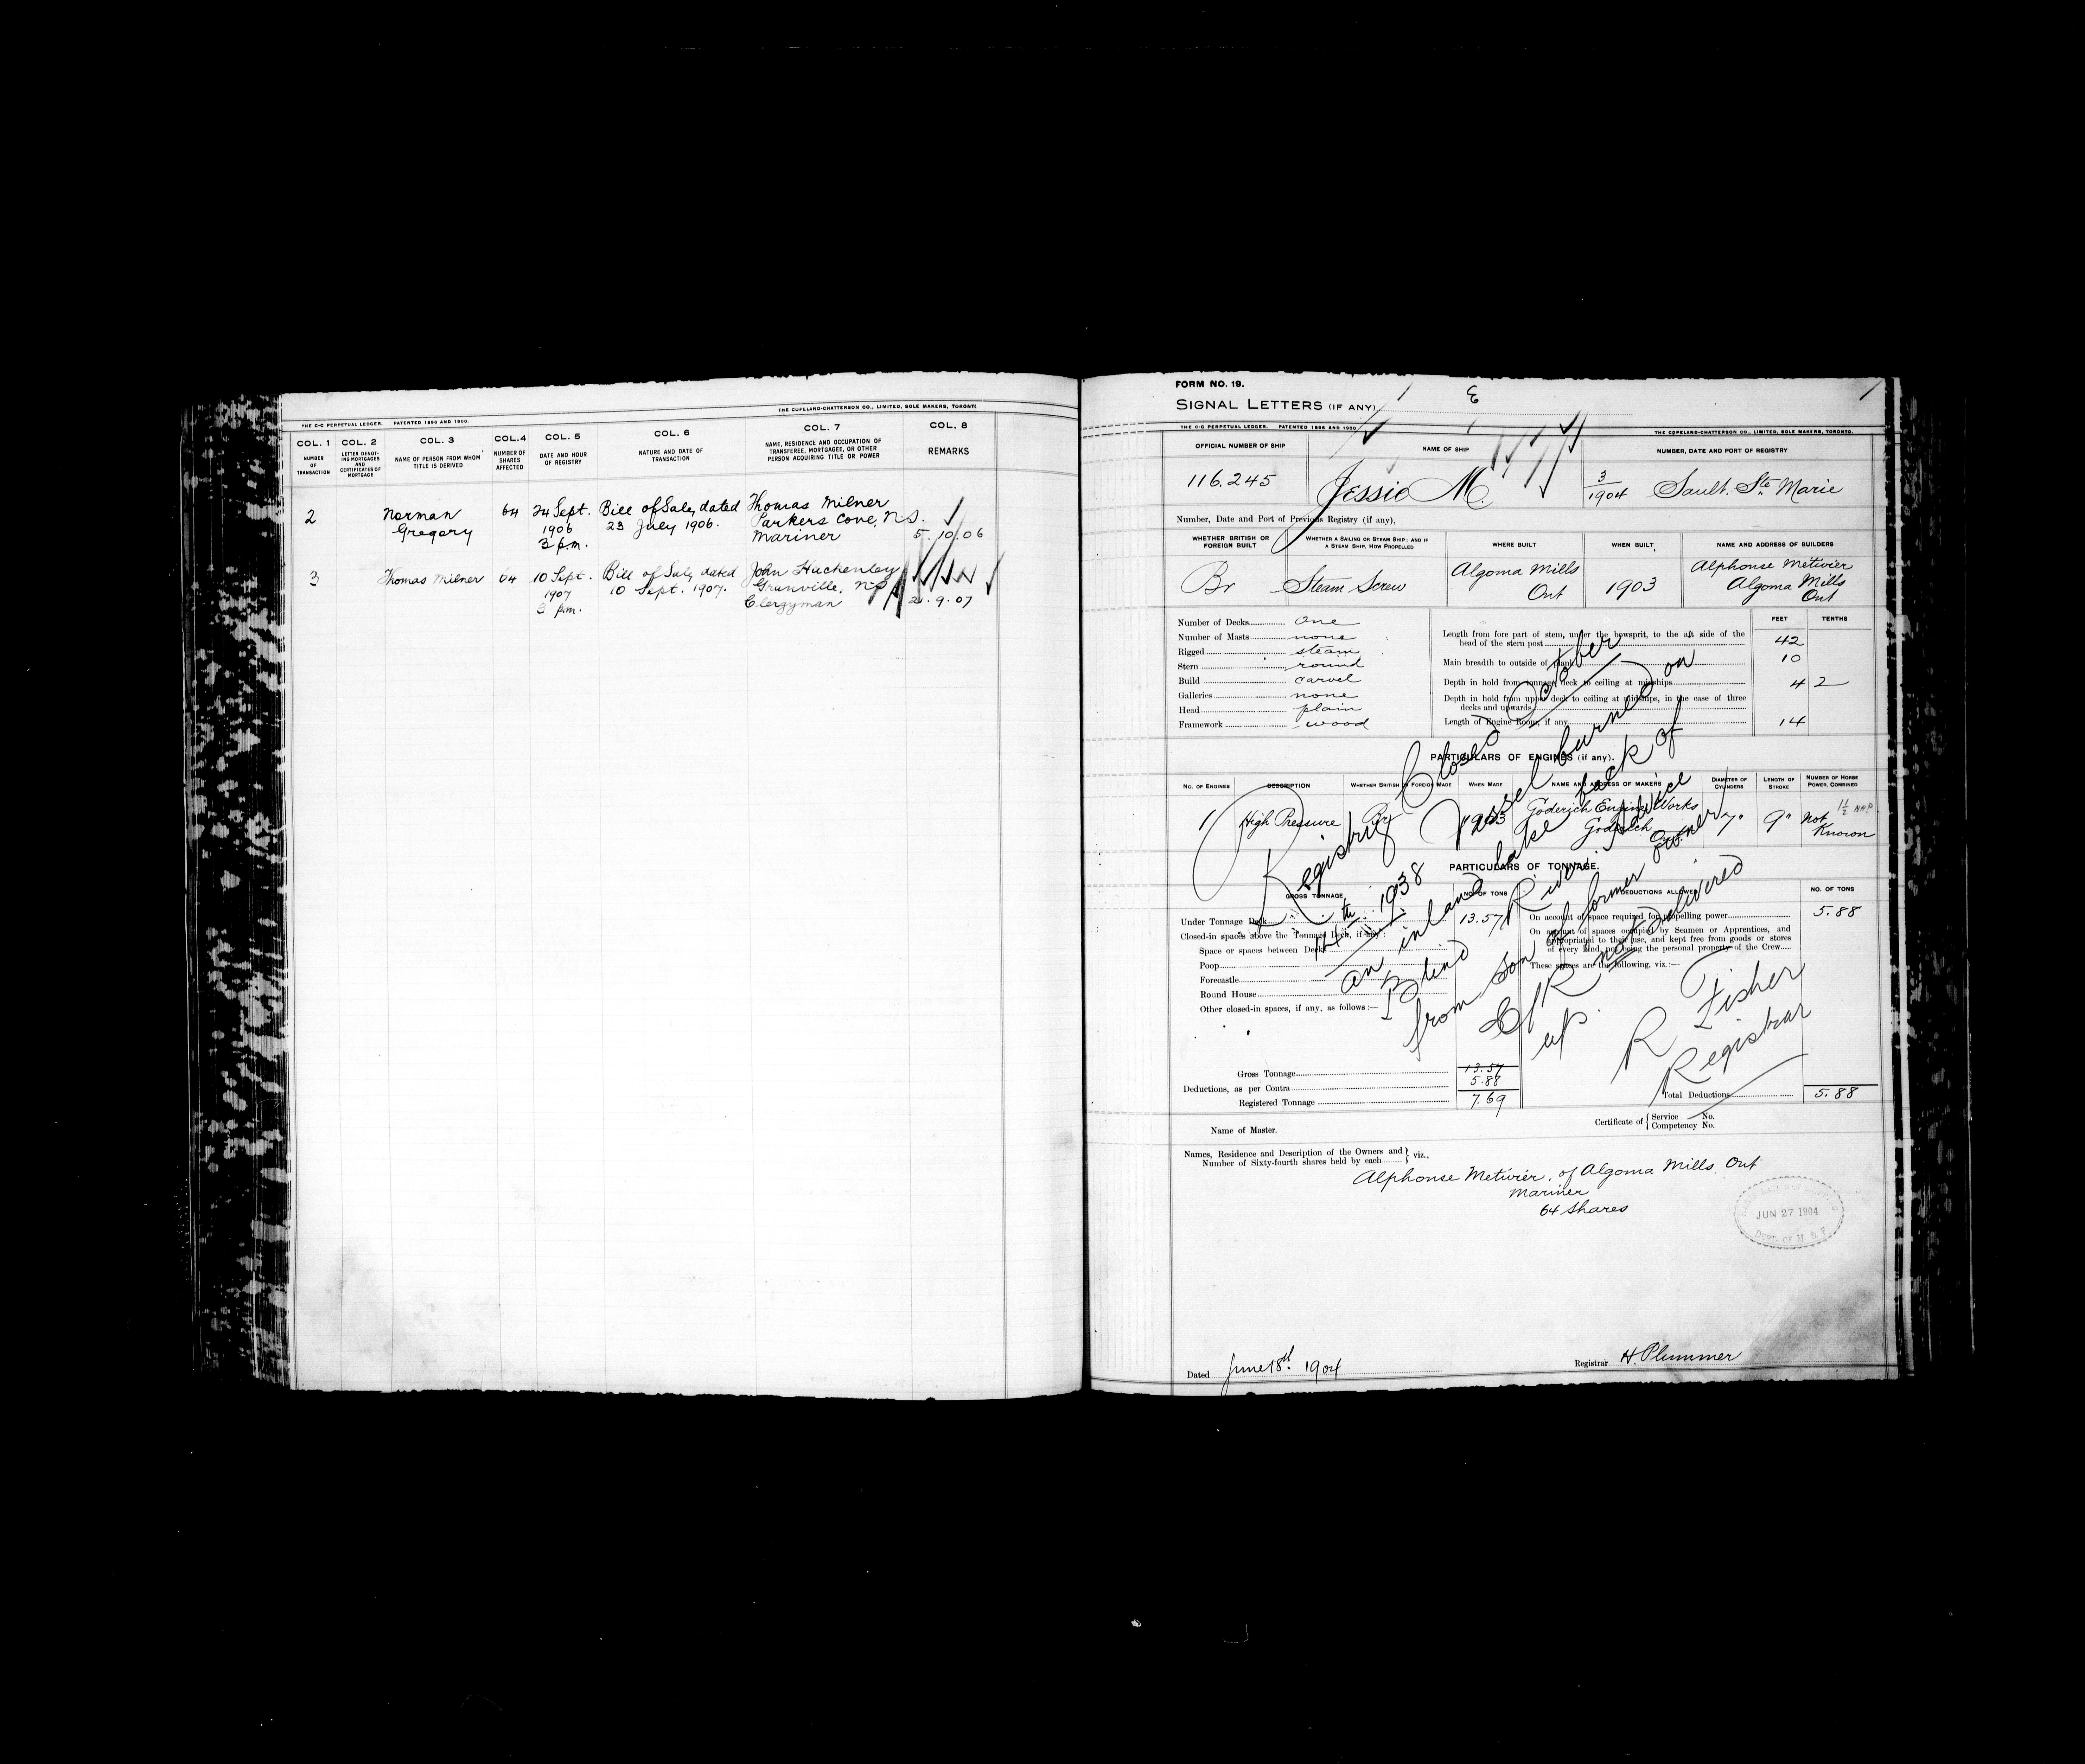 THE C-C PERPETUAL LEDGER. PATENTED 1896 AND 1900. THE COPELAND-CHATTERSON CO., LIMITED, SOLE MAKERS, TORONTO.
COL. 1 COL. 2 COL. 3 COL. 4 COL. 5 COL. 6 COL. 7 COL. 8
NUMBER OF TRANSACTION
LETTER DENOTING MORTGAGES AND CERTIFICATES OF MORTGAGE
NAME OF PERSON FROM WHOM TITLE IS DERIVED
NUMBER OF SHARES AFFECTED
DATE AND HOUR OF REGISTRY
NATURE AND DATE OF TRANSACTION
NAME, RESIDENCE AND OCCUPATION OF TRANSFEREE, MORTGAGEE, OR OTHER PERSON ACQUIRING TITLE OR POWER
REMARKS
2 Norman 64 24 Sept. Bill of Sale, dated Thomas Milner
Gregory 1906 23 July 1906. Parkers Cove, N.S.
3 p.m. Mariner 5.10.06
3 Thomas Milner 64 10 Sept. Bill of Sale, dated John
1907 10 Sept. 1907. Granville, N.S.
3 p.m. Clergyman 21.9.07
FORM NO. 19.
SIGNAL LETTERS (IF ANY)
THE C-C PERPETUAL LEDGER. PATENTED 1896 AND 1900. THE COPELAND-CHATTERSON CO., LIMITED, SOLE MAKERS, TORONTO.
OFFICIAL NUMBER OF SHIP NAME OF SHIP NUMBER, DATE AND PORT OF REGISTRY
116.245 Jessie M. 3/1904 Sault. Ste. Marie
Number, Date and Port of Previous Registry (if any),
WHETHER BRITISH OR FOREIGN BUILT
WHETHER A SAILING OR STEAM SHIP; AND IF A STEAM SHIP, HOW PROPELLED
WHERE BUILT
WHEN BUILT.
NAME AND ADDRESS OF BUILDERS
Br Steam Screw Algoma Mills Ont 1903 Alphonse Metivier
Algoma Mills
Ont
Number of Decks One
Number of Masts none
Rigged steam
Stern round
Build carvel
Galleries none
Head plain
Framework wood
FEET TENTHS
Length from fore part of stem, under the bowsprit, to the aft side of the head of the stern post 42
Main breadth to outside of plank 10
Depth in hold from tonnage deck to ceiling at midships 4 2
Depth in hold from upper deck to ceiling at midships, in the case of three decks and upwards
Length of Engine Room, if any 14
PARTICULARS OF ENGINES (if any).
No. of Engines DESCRIPTION Whether British or Foreign Made When Made Name and Address of Makers Diameter of Cylinders Length of Stroke Number of Horse Power, Combined
1 High Pressure Br 1903 Goderich Engine Works Goderich Ont 7" 9" Not Known 1½ N.H.P.
PARTICULARS OF TONNAGE.
GROSS TONNAGE NO. OF TONS DEDUCTIONS ALLOWED NO. OF TONS
Under Tonnage Deck 13.57
Closed-in spaces above the Tonnage Deck, if any:
Space or spaces between Decks
Poop
Forecastle
Round House
Other closed-in spaces, if any, as follows:—
On account of space required for propelling power 5.88
On account of spaces occupied by Seamen or Apprentices, and appropriated to their use, and kept free from goods or stores of every kind, not being the personal property of the Crew
These spaces are the following, viz.:—
Gross Tonnage 13.57
Deductions, as per Contra 5.88
Registered Tonnage 7.69
Total Deductions 5.88
Registry Closed October
14th 1938 Vessel burned on
an inland lake back of
Blind River. Advice
from son of former owner
C/R not delivered
up.
R Fisher
Registrar
Name of Master.
Certificate of { Service No.
Competency No.
Names, Residence and Description of the Owners and
Number of Sixty-fourth shares held by each } viz.,
Alphonse Metivier, of Algoma Mills. Ont
Mariner
64 Shares
JUN 27 1904
DEPT. OF M & F
Dated June 18th. 1904
Registrar H. Plummer